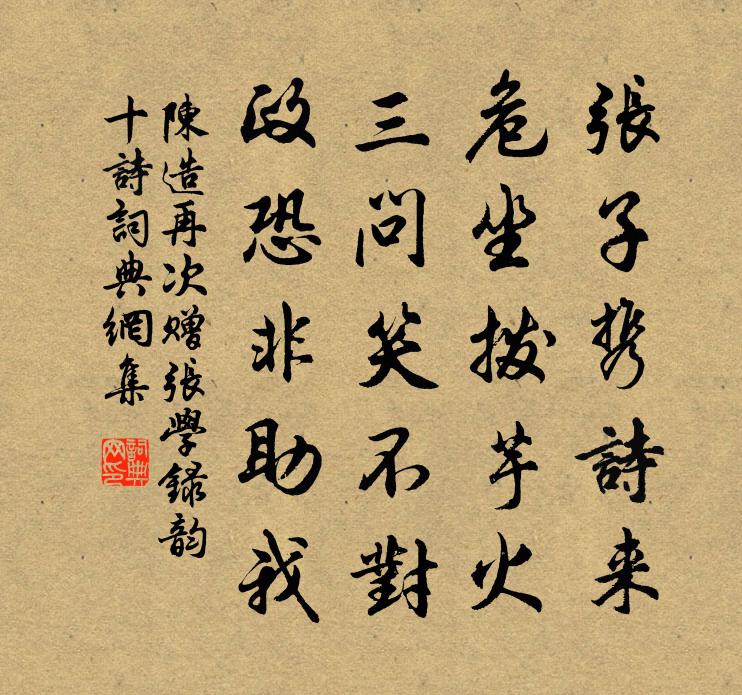 張子携詩来
危坐撥芋火
三問笑不對
政恐非助我
陳造再次贈張學録韵
十詩詞典網集
詞典網印